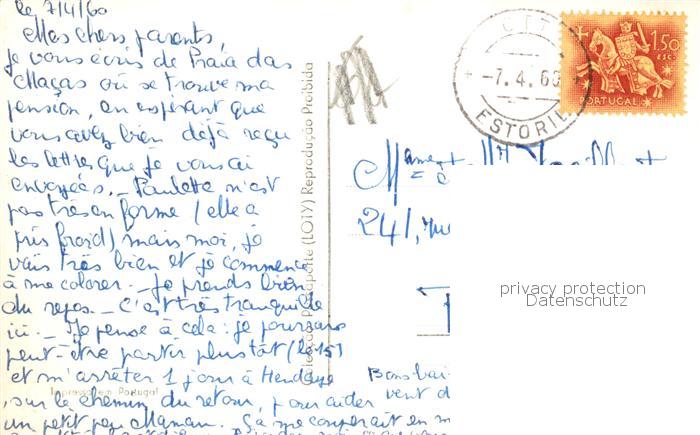 le 7/4/60
Mes chers parents,
je vous écris de Praia das
Maças où se trouve ma
pension, en espérant que
vous avez bien déjà reçu
les lettres que je vous ai
envoyées._ Paulette n'est
pas très en forme (elle a
pris froid) mais moi, je
vais très bien et je commence
à me colorer._ Je prends bien
du repos._ C'est très tranquille
ici._ Je pense à cela : je pourrais
peut-être partir plus tôt (le 15)
et m'arrêter 1 jour à Hendaye
sur le chemin du retour, pour aider
un petit peu Maman. Ça me couperait en
Impresso em Portugal
(LOTY) Reprodução Proibida
CTT
-7.4.60
ESTORIL
1$50
ESC.
PORTUGAL
M
241, rue
Bons bai
vent d
privacy protection
Datenschutz